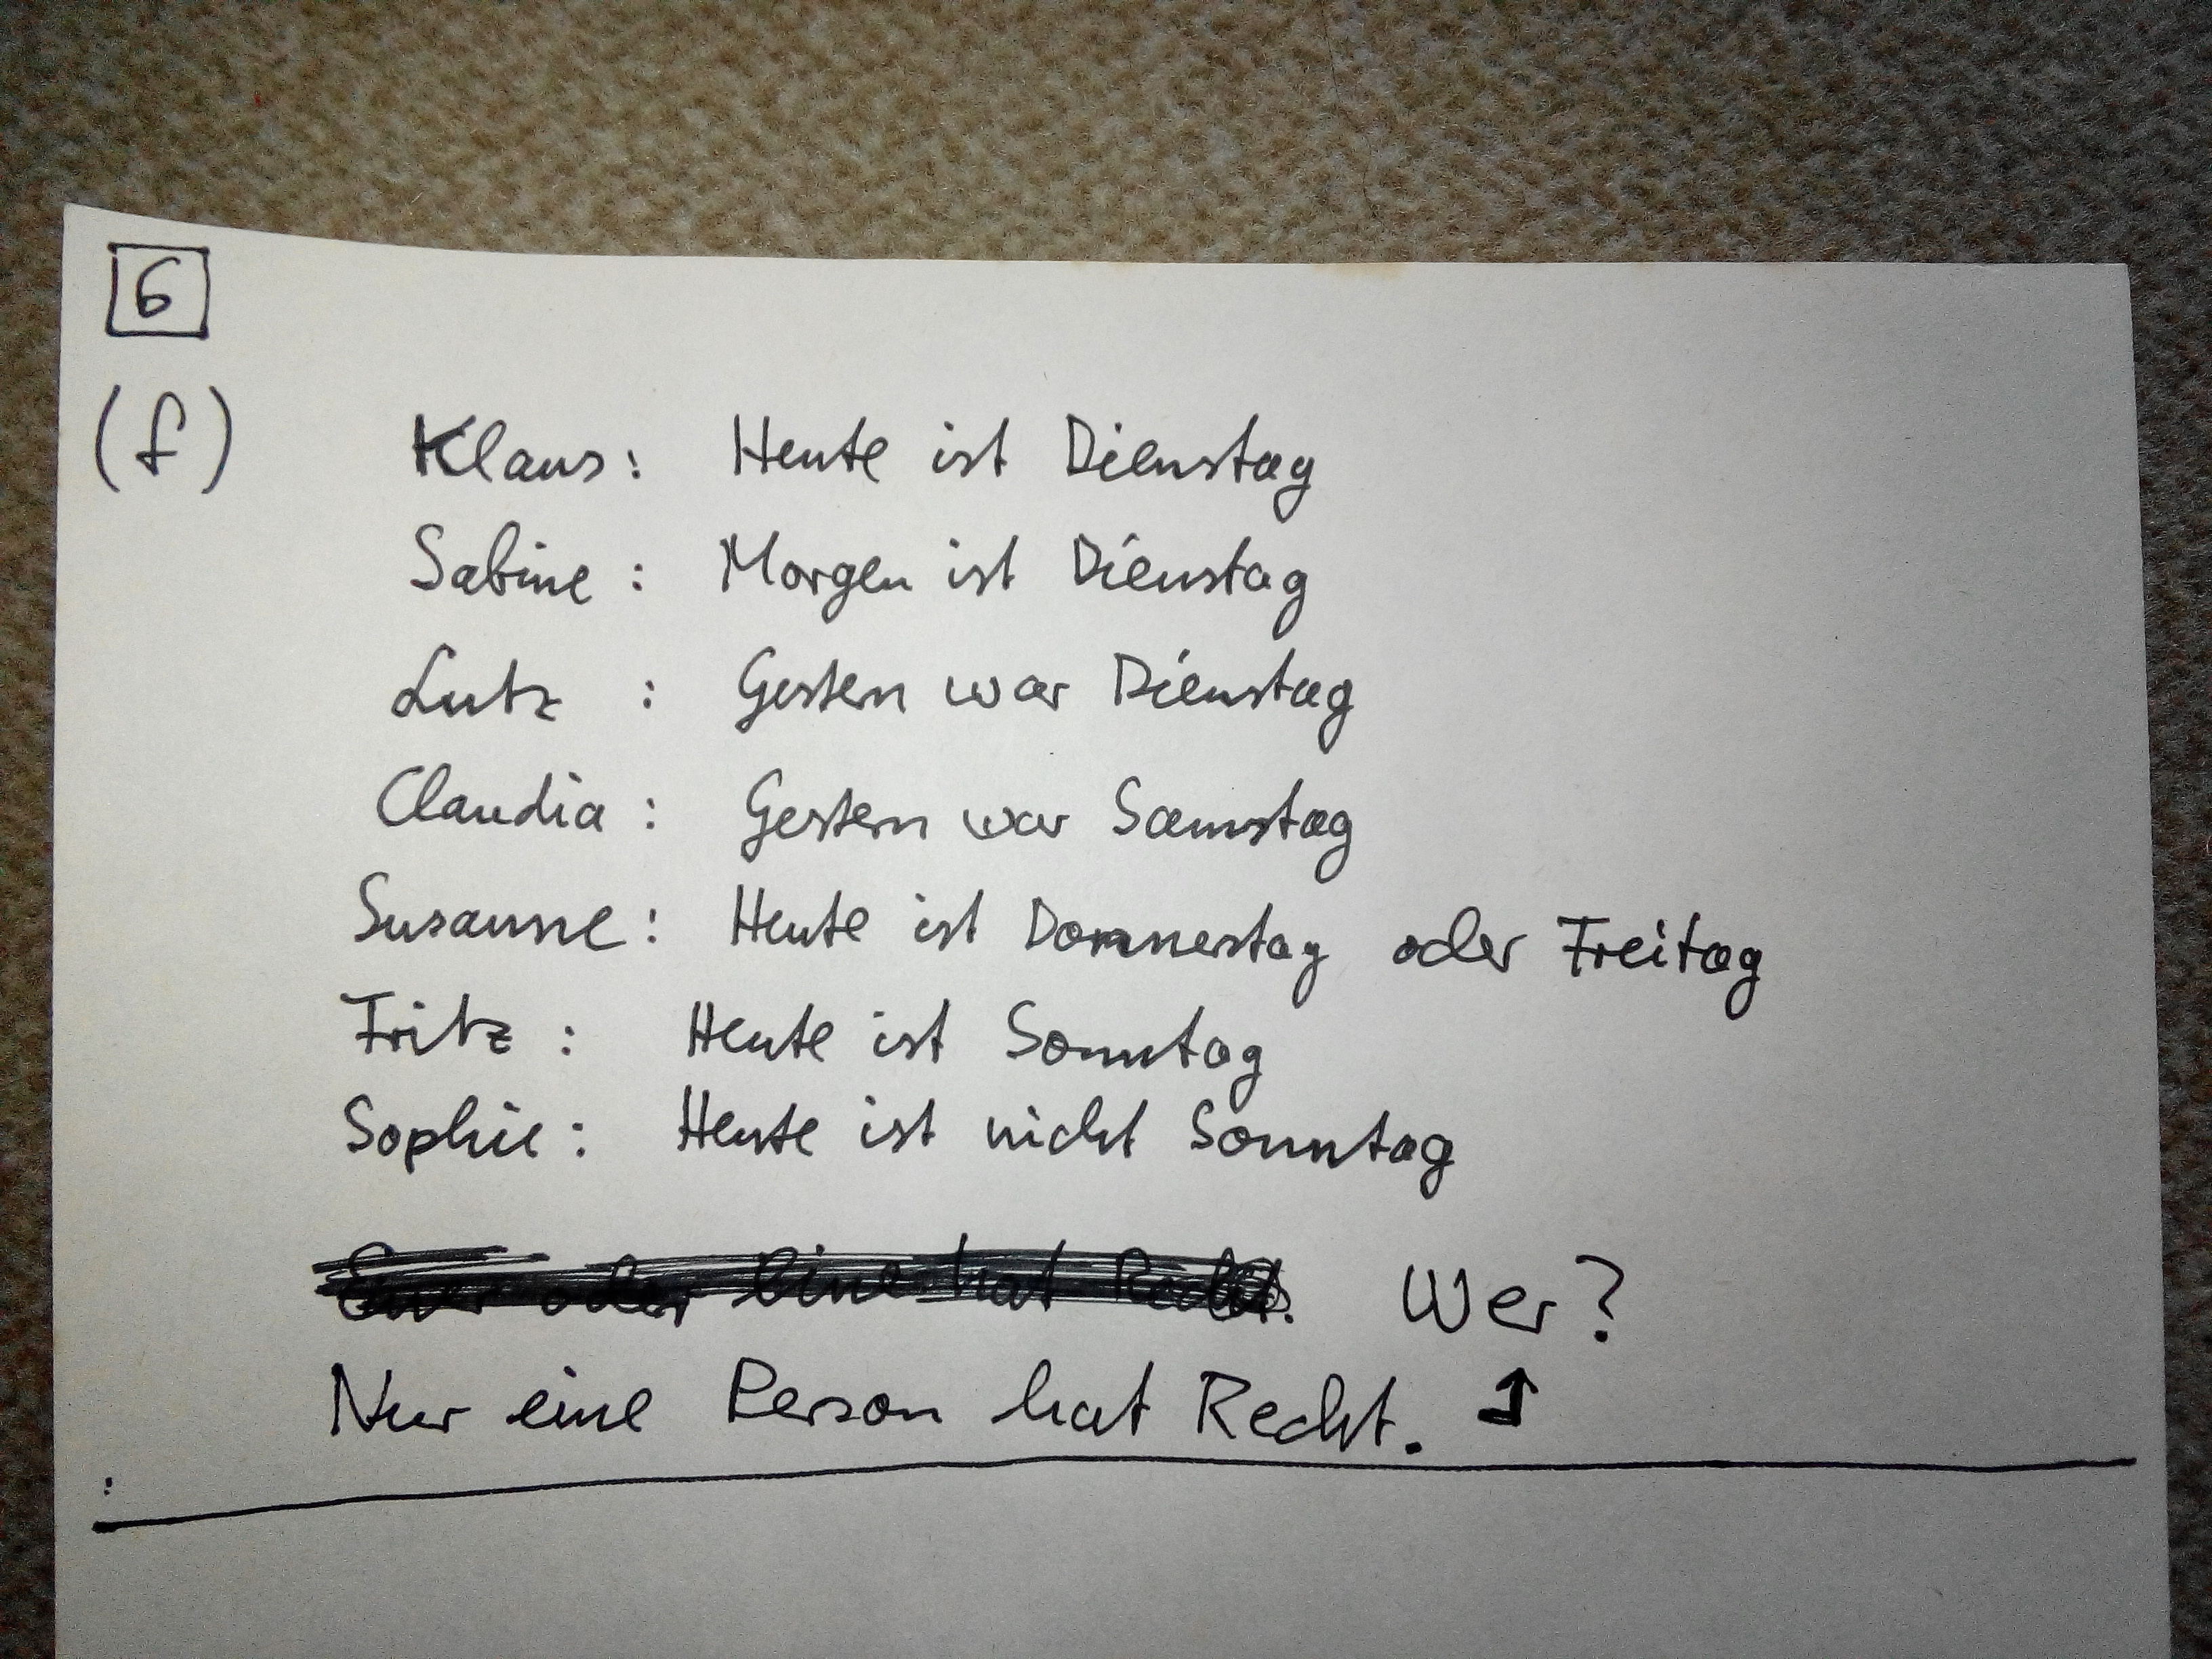 6
(f) Klaus: Heute ist Dienstag
Sabine: Morgen ist Dienstag
Lutz: Gestern war Dienstag
Claudia: Gestern war Samstag
Susanne: Heute ist Donnerstag oder Freitag
Fritz: Heute ist Sonntag
Sophie: Heute ist nicht Sonntag
Einer oder eine hat Recht. Wer?
Nur eine Person hat Recht.